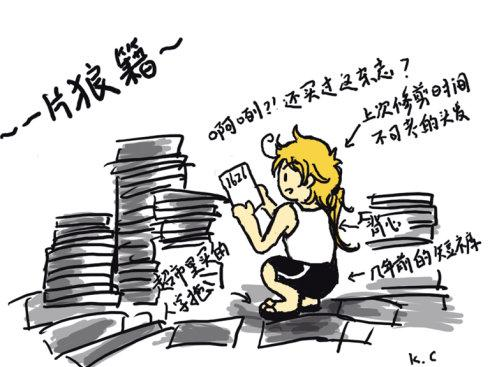 ~一片狼籍~
啊咧?! 还买过这杂志?
上次修剪时间
不可考的头发
1626
背心
几年前的短裤
超市里买的
人字拖
K.C